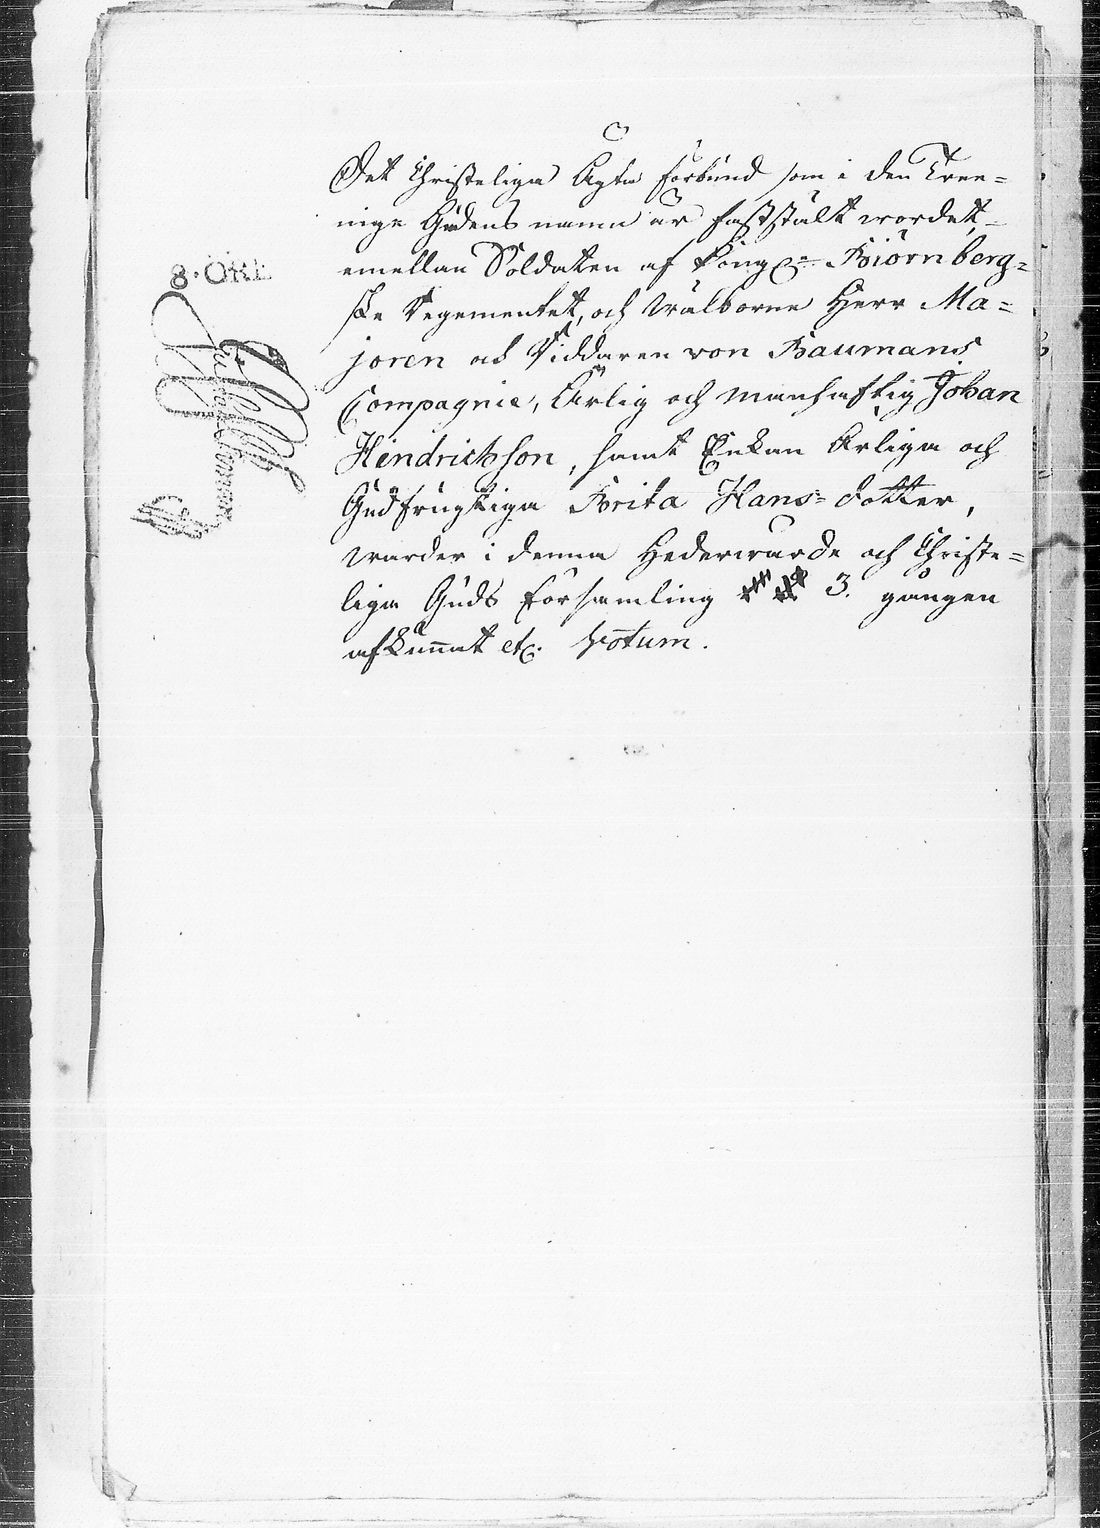 8. ÖRE
Det Christeliga Ägta förbund som i den Tree=
nige Gudens namn är fastställt wordet,
emellan Soldaten af Kongl: Biörnberg=
ska Regementet, och Wälborne Herr Ma=
joren och Riddaren von Baumans
Compagnie, Ärlig och Manhaftig Johan
Hindrichson, samt Enkan Ärliga och
Gudfrugtiga Brita Hans=dotter,
warder i denna Hederwärda och Christe=
liga Guds församling 3. gången
afkunnat etc. Votum.